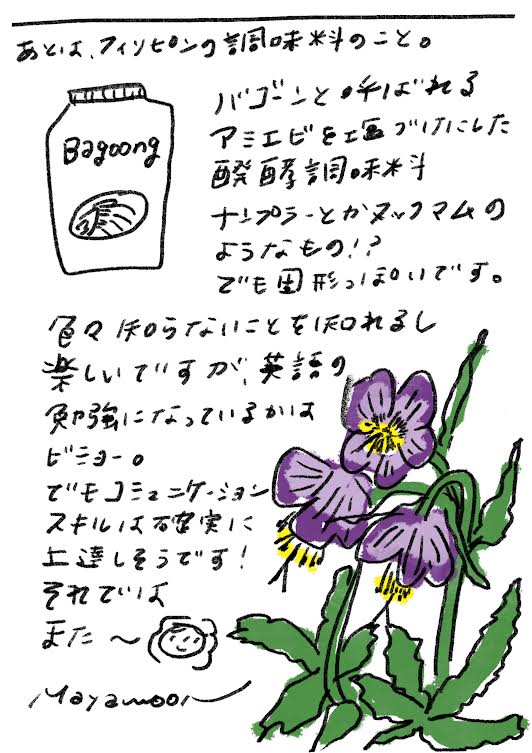 あとは、フィリピンの調味料のこと。
Bagoong
バゴーンと呼ばれる
アミエビを塩づけにした
醗酵調味料
ナンプラーとかヌックマムの
ようなもの!?
でも固形っぽいです。
色々知らないことを知れるし
楽しいですが、英語の
勉強になっているかは
ビミョー。
でもコミュニケーション
スキルは確実に
上達しそうです!
それでは
また〜
Mayamoon